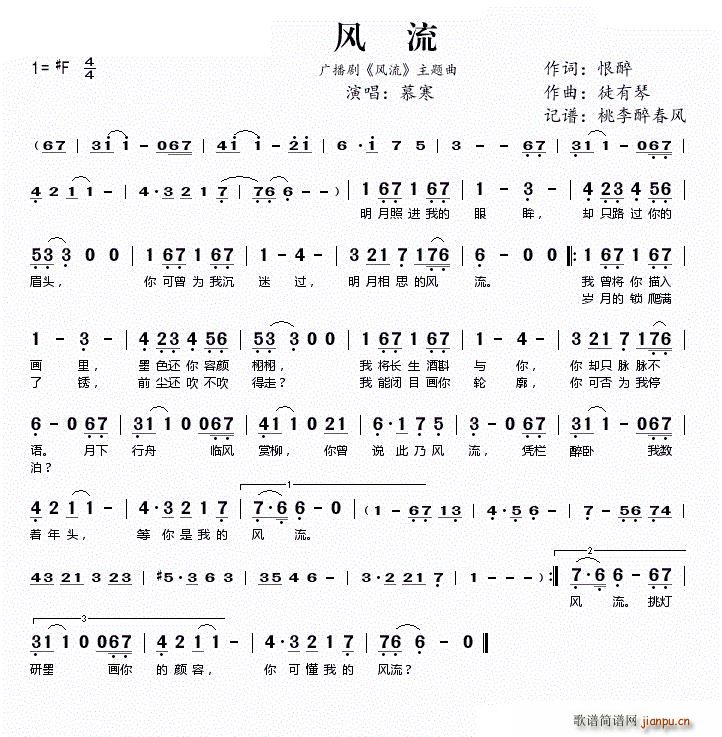 风 流
1=♯F 4/4
广播剧《风流》主题曲
演唱：慕寒
作词：恨醉
作曲：徒有琴
记谱：桃李醉春风
(67 | 31 1 - 067 | 41 1 - 21 | 6 · 1 7 5 | 3 - - 67 | 31 1 - 067 |
4 2 1 1 - | 4 · 3 2 2 1 7 | 76 6 - - ) | 1 67 1 67 | 1 - 3 - | 4 23 4 56 |
明月照进我的 眼 眸， 却只路过你的
53 3 0 0 | 1 67 1 67 | 1 - 4 - | 3 21 7 1 76 | 6 - 0 0 |: 1 67 1 67 |
眉头， 你可曾为我沉 迷 过， 明月相思的风 流。 我曾将你描入
岁月的锁爬满
1 - 3 - | 4 23 4 56 | 53 3 0 0 | 1 67 1 67 | 1 - 4 - | 3 21 7 1 76 |
画 里， 墨色还你容颜 栩栩， 我将长生酒斟 与 你， 你却只脉脉不
了 锈， 前尘还吹不吹 得走？ 我能闭目画你 轮 廓， 你可否为我停
6 - 0 67 | 31 1 0 067 | 41 1 0 21 | 6 · 1 7 5 | 3 - 0 67 | 31 1 - 067 |
语。 月下 行舟 临风 赏柳， 你曾 说此乃风 流， 凭栏 醉卧 我数
泊？
4 2 1 1 - | 4 · 3 2 2 1 7 | 7 · 6 6 - 0 | (1 - 67 13 | 4 · 5 6 - | 7 - 56 74 |
1
着年头， 等你是我的 风 流。
43 21 3 23 | ♯5 · 3 6 3 | 35 4 6 - | 3 · 2 21 7 | 1 - - - ) :| 7 · 6 6 - 67 |
2
风 流。 挑灯
3
31 1 0 067 | 4 2 1 1 - | 4 · 3 2 1 7 | 76 6 - 0 ‖
研墨 画你 的颜容， 你可懂我的 风流？
歌谱简谱网
jianpu.cn